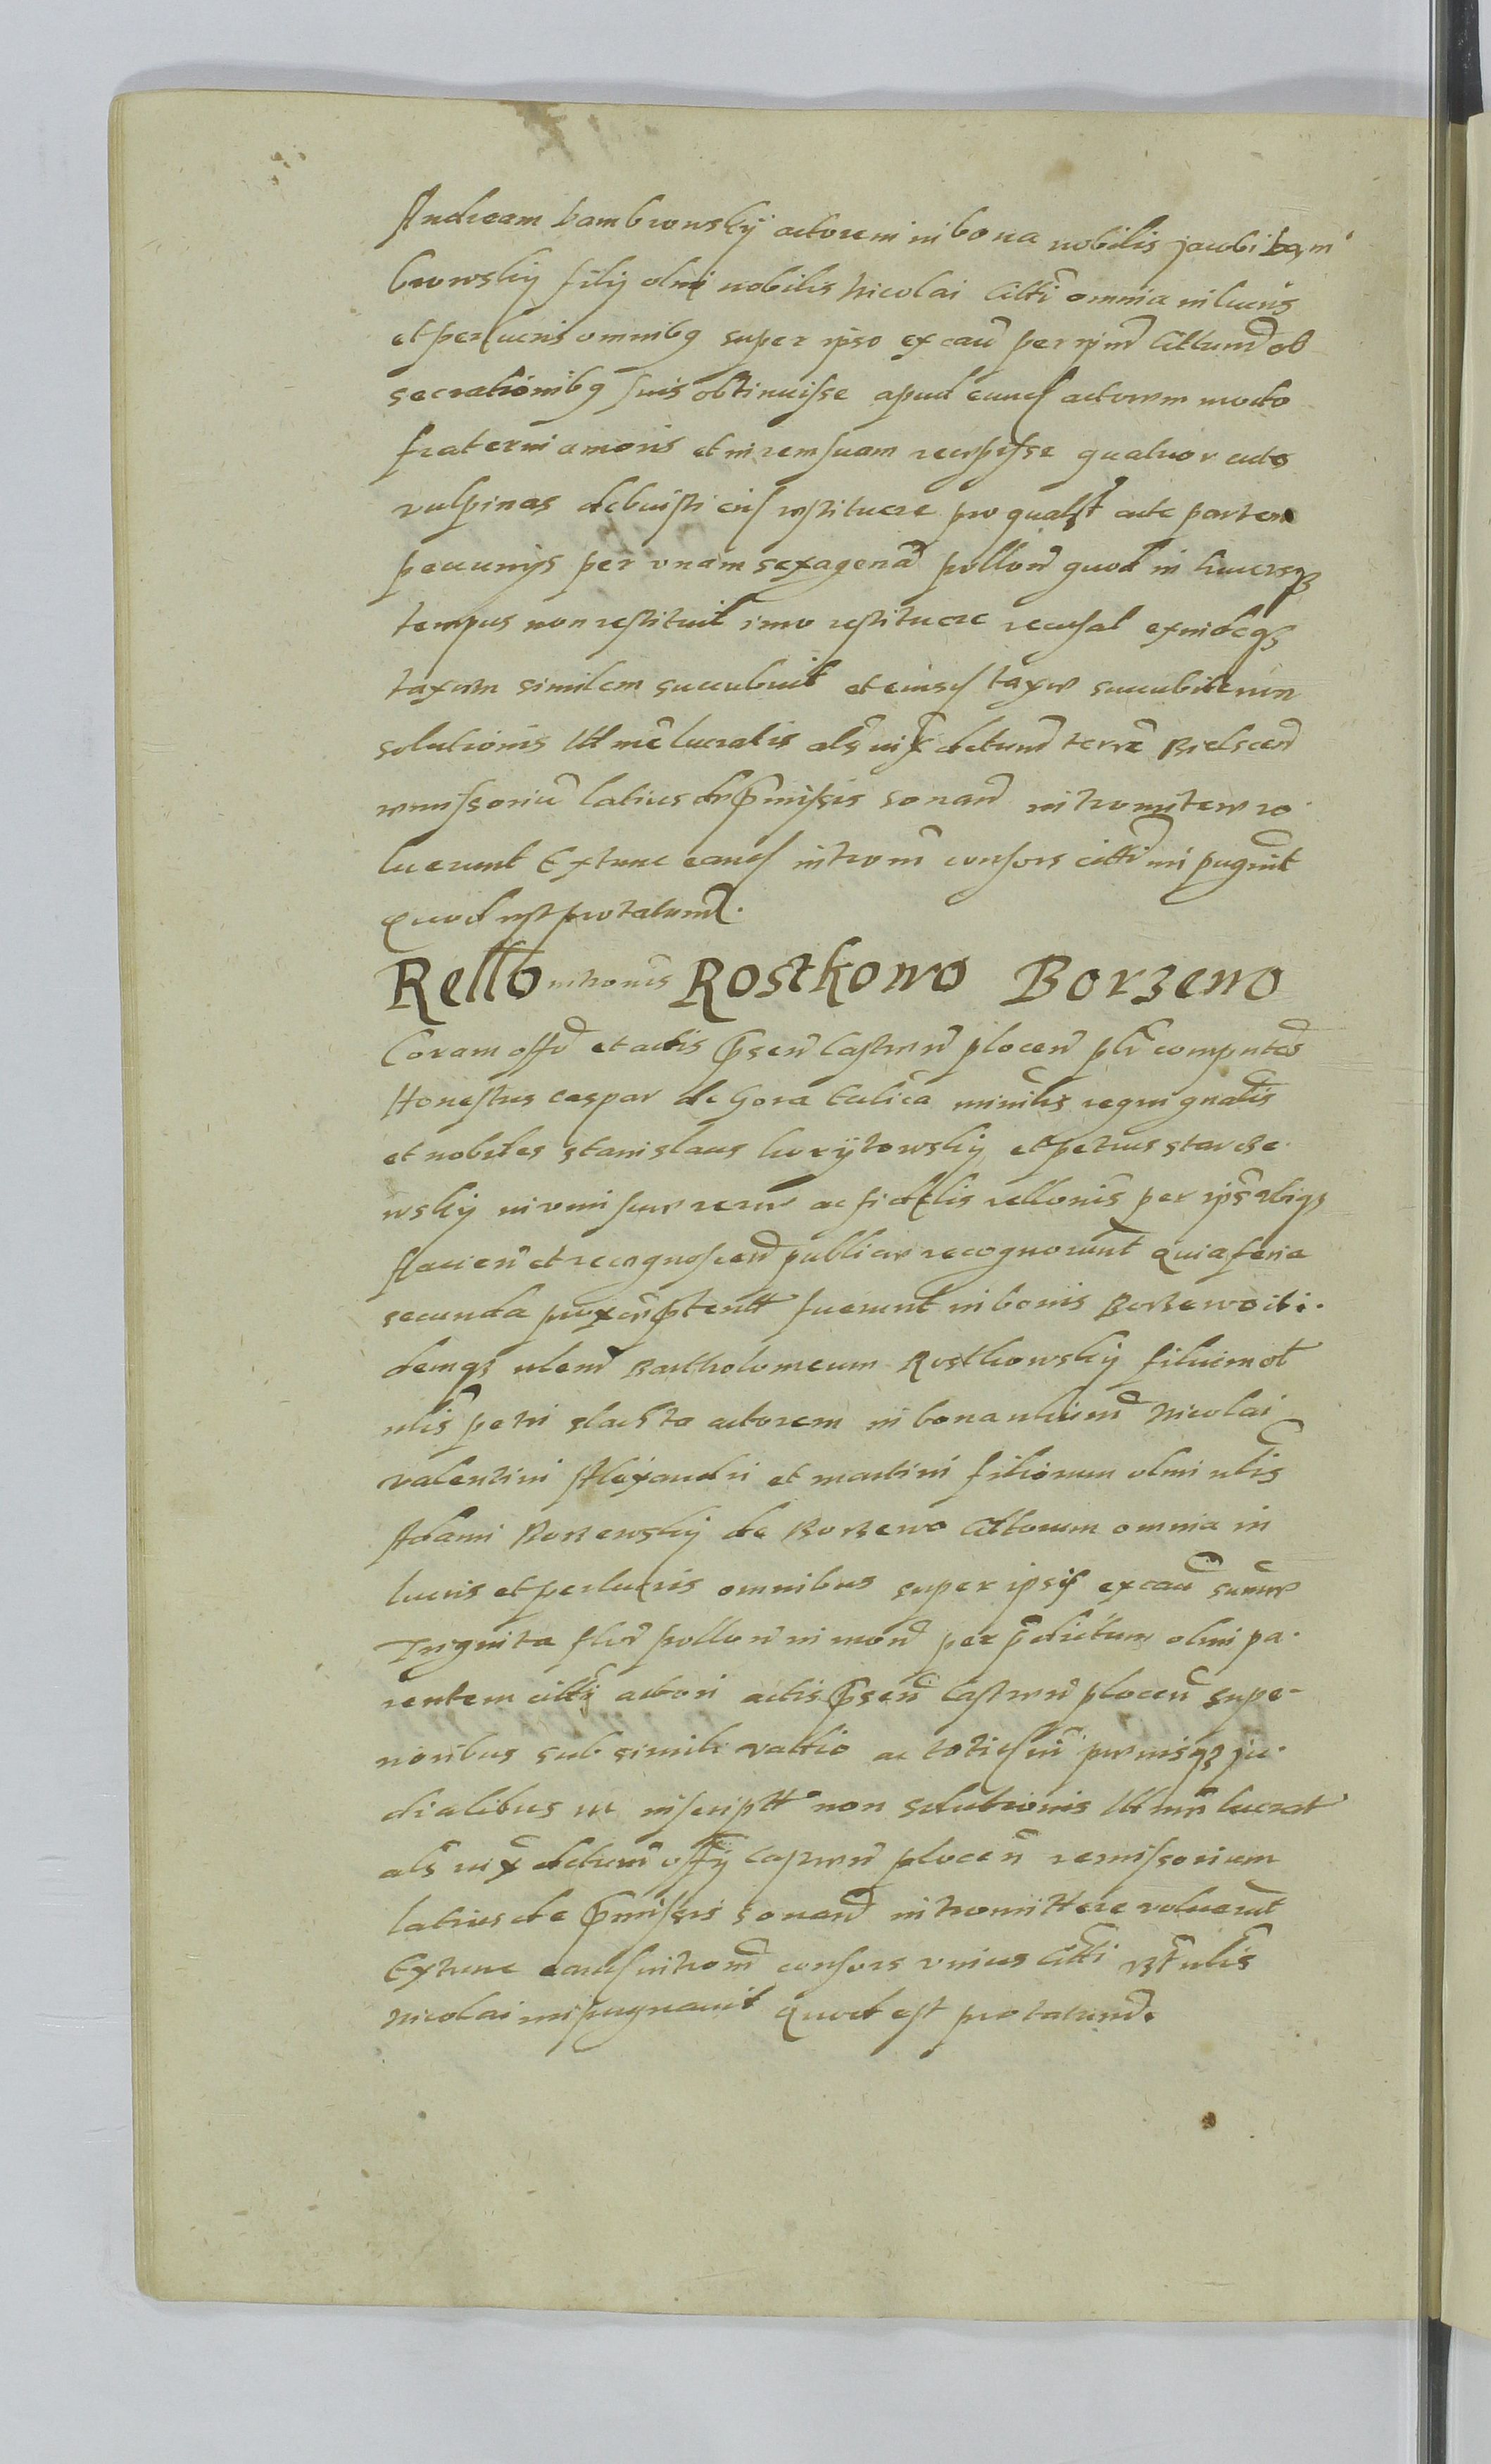 Andream Dambrowskÿ actorem in bona nobilis Jacobi Dam
browskÿ filÿ olim nobilis Nicolai Citti omnia in lucris
et perlucris omnibq super ipso ex cau per ipm Cittum ob
secrationibq suis obtinuisse apud eund actorem modo
fraterni amoris et in rem suam recepisse quatuor cutes
vulpinas debuisti eius restituere pro qualt cute partem
pecunÿs per vnam sexagena pollon quod in hucusqz
tempus non restituit imo restituere recusat exindeqz
taxam similem succubuit et eiusd taxe succubite non
solutionis lit me lucratis als iux dctum terre Bielscen
remissoriu latius de pmissis sonan intromittere vo
luerunt Extunc eand introm consors citti impugnit
Quod est protatum.
Rello intromis Rostkowo Borzewo
Coram offo et actis psen Castren plocen plr comparntes
Honestus Caspar de Gora Calica minilis regni gnalis
et nobiles Stanislaus korÿtowskÿ et Petrus Starze
wskÿ in vim sue vere ac fidelis rellonis per ips
facien et recognoscen publice recognorunt Quia feria
secunda prox ptentt fuerunt in bonis Borzewo ibi
demqz nlem Bartholomeum Rostkowskÿ filium ol
nlis Petri slachta actorem in bona nlium Nicolai
Valentini Alexandri et Martini filiorum olim nlis
Adami Borzewskÿ de Borzewo Cittorum omnia in
lucris et perlucris omnibus super ipsis ex cau summe
Triginta flor pollon in mon per pdictum olim pa
rentem citti actori actis psen Castren plocen supe
rioribus sub simili vallio ac totidem penisqz ju
dialibus in inscriptt non solutionis lit men lucrat
als iux dctum offÿ Castren plocen remissorium
latius de pmissis sonan intromittere voluerunt
Extunc eand introm consors vnius Citti nlis
Nicolai impugnauit Quod est protatum.